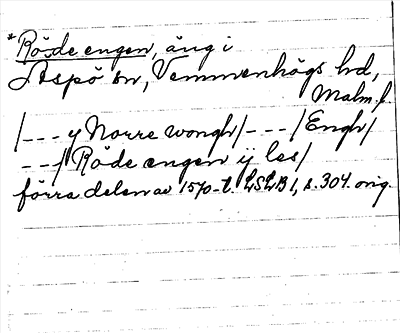 *Röde engen, äng i
Aspö sn, Vemmenhögs hd,
Malm. l.
/--- y Norre wongh/--- /Engh/
--/ Röde engen ij les/
förra delen av 1570-t. LSLB 1, s. 304. orig.